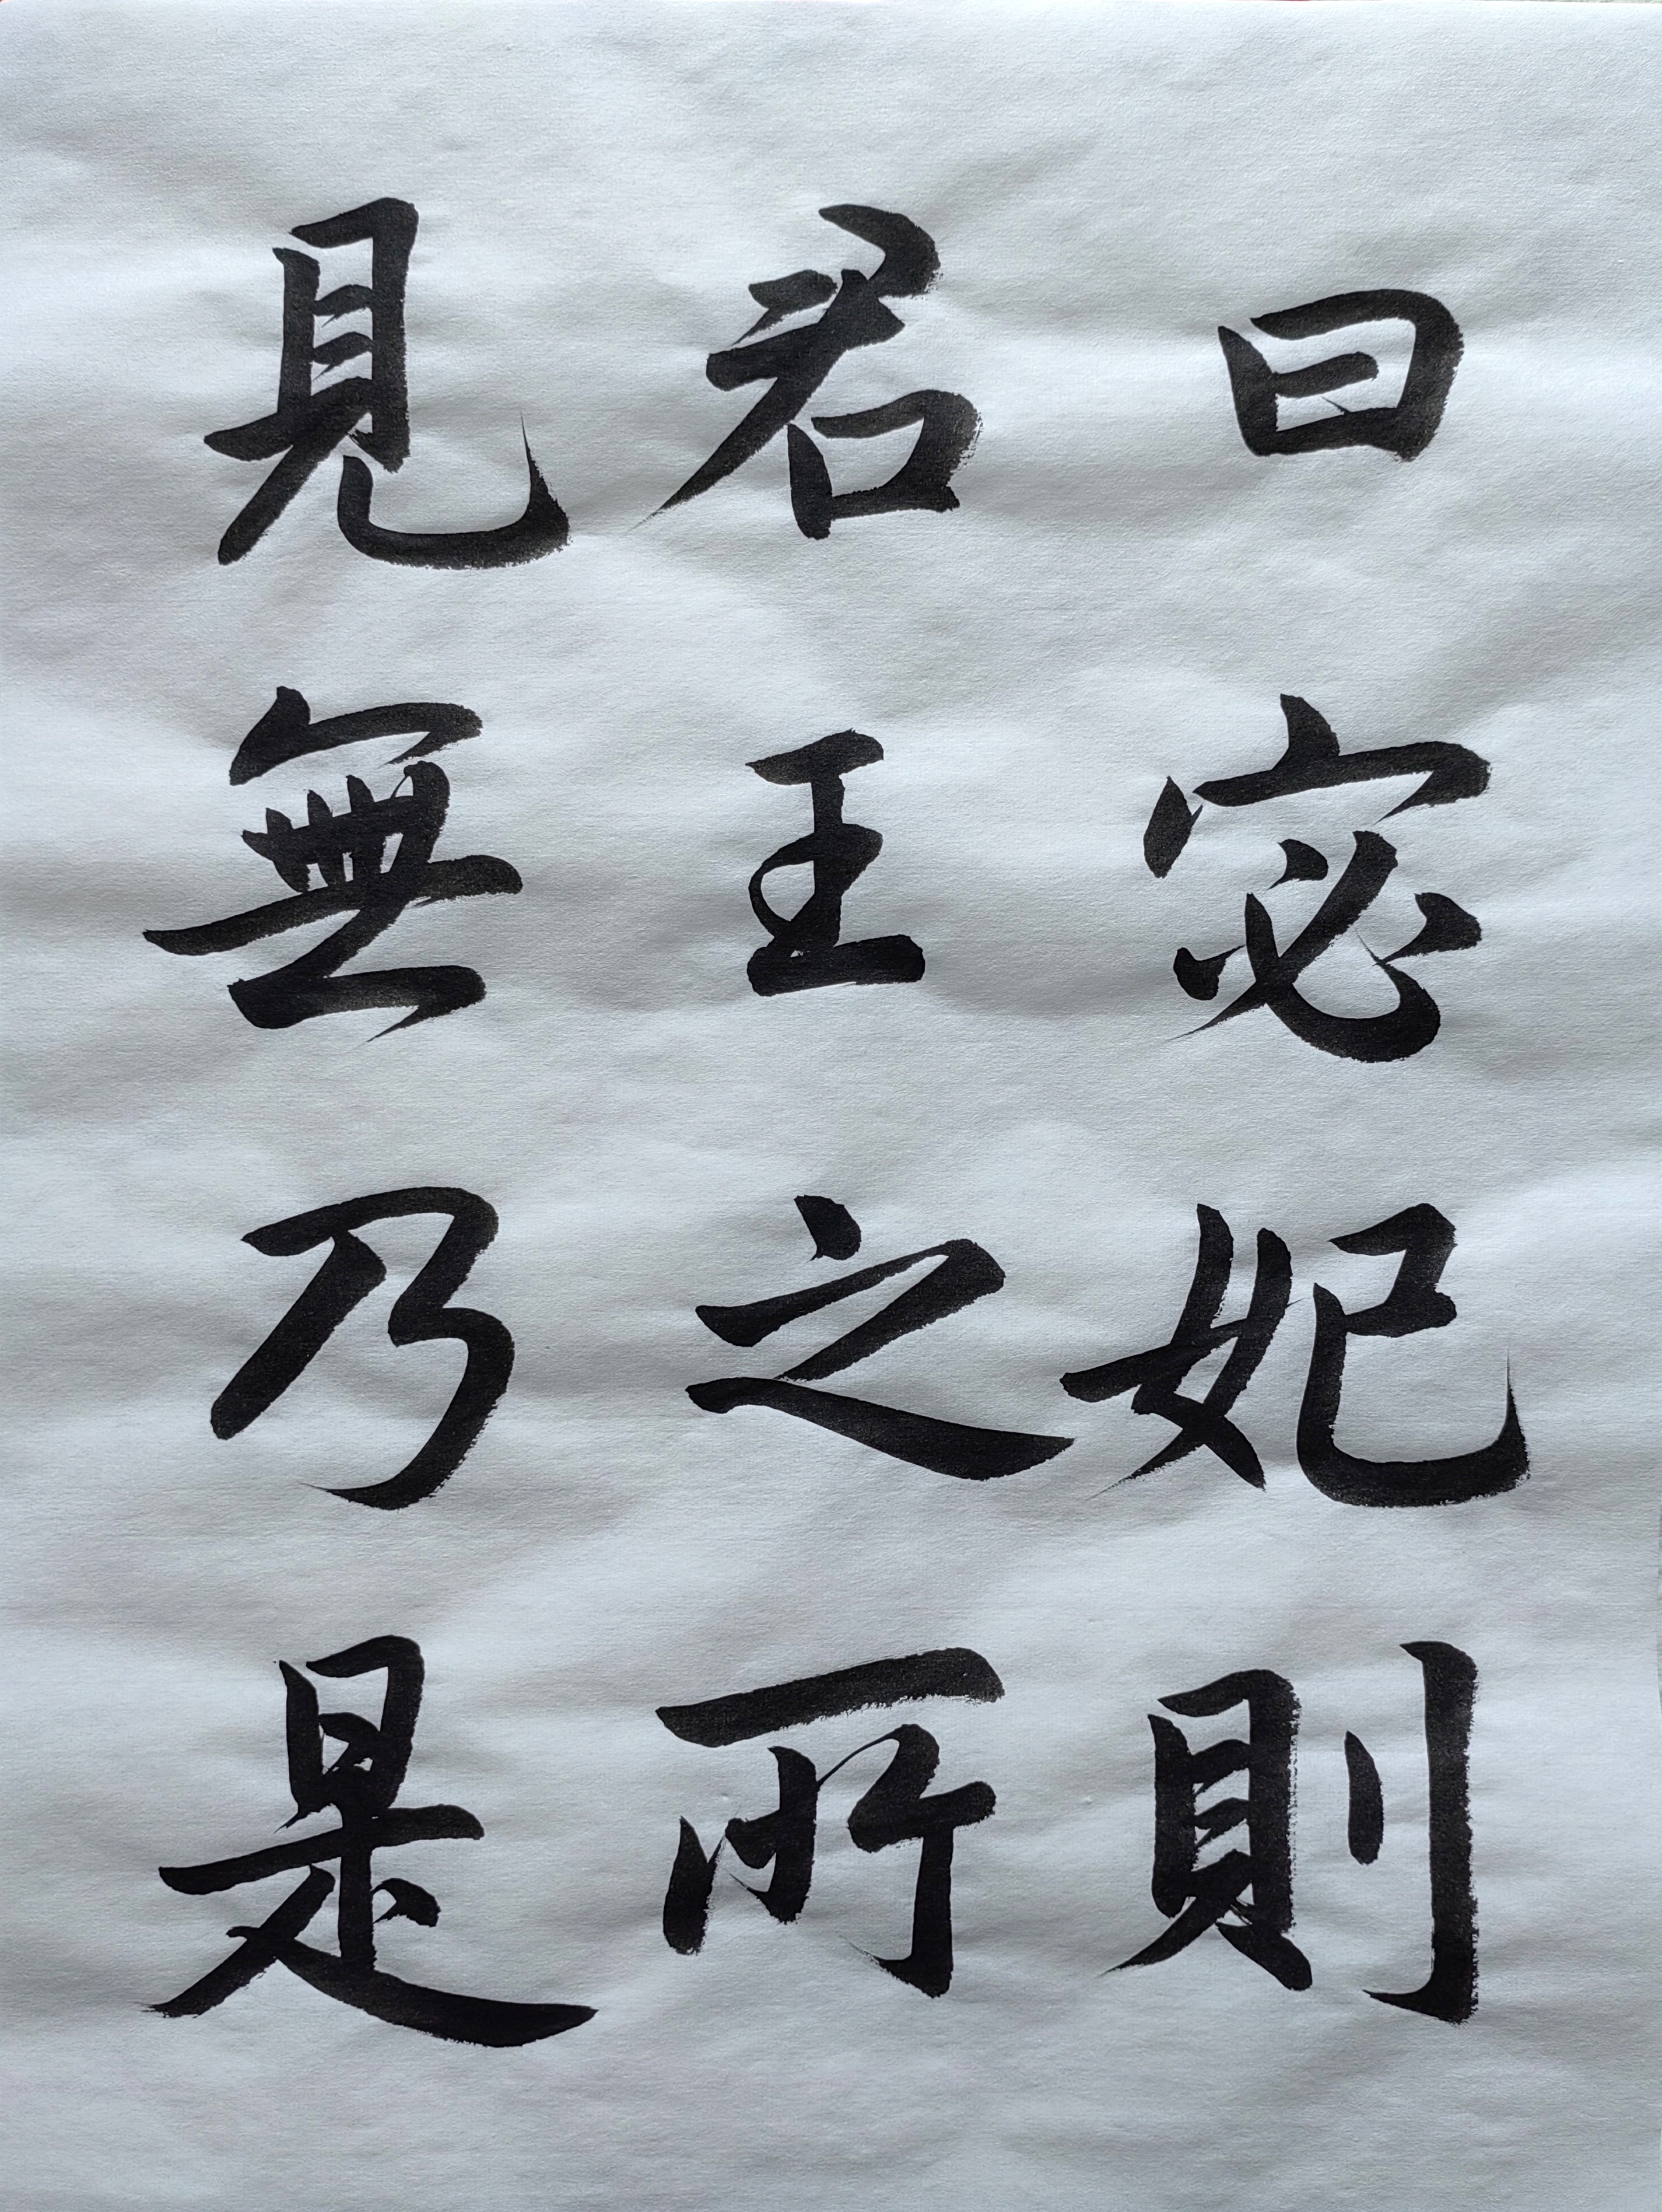 曰宓妃則
君王之所
見無乃是